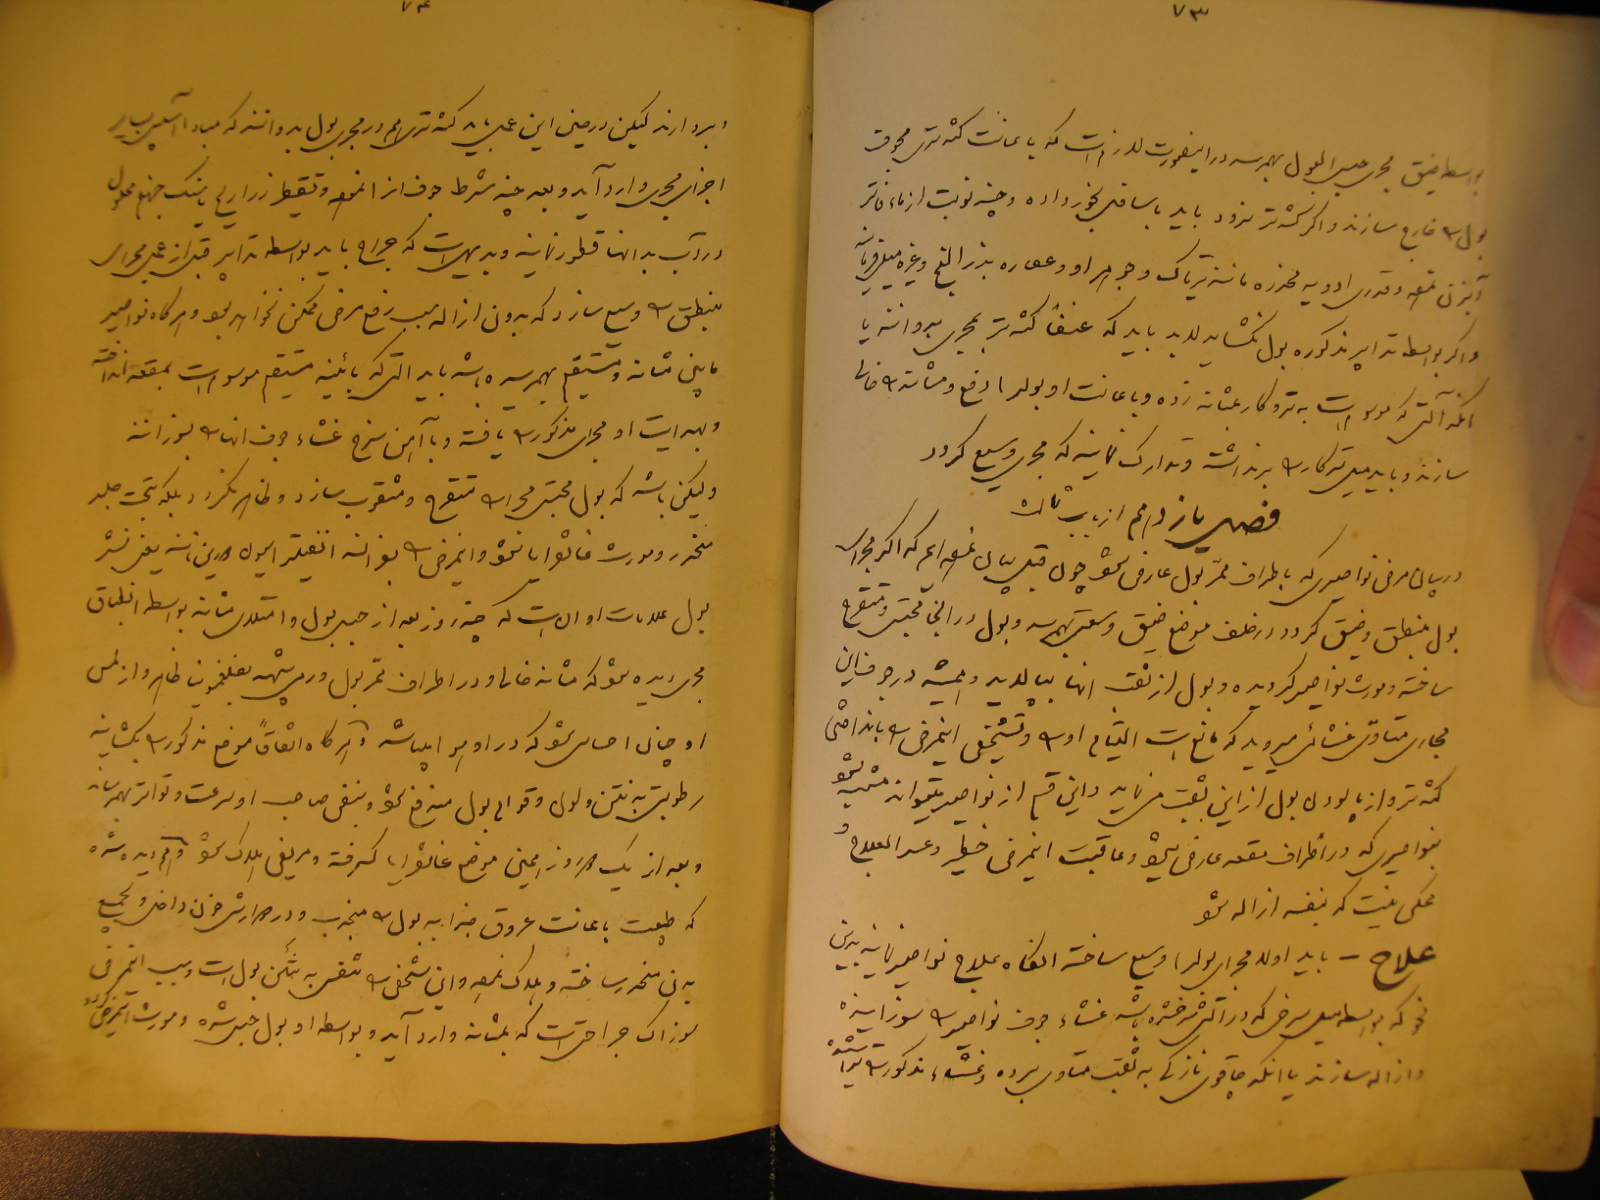 ۷۳
بواسطه ضیق مجری حبس البول بهم رسد در اینصورت لازم است که باعانت کتهتری مجوف
بول را خارج سازند و اگر کتهتر نرود باید با ساقی بخور داده و چند نوبت از ماء فاتر
آبزن نموده و قدری ادویه مخدره مانند تریاک و جوهر او و عصاره بذر البنج و غیره میل فرمایند
و اگر بواسطه تدابیر مذکوره بول نگشاید لابد باید که عنفاً کتهتر بمجری بدوانند یا
آنکه آلتی که موسوم است به تروکار بمثانه زده و باعانت او بول را دفع و مثانه را خالی
سازند و باید میل تروکار را برنداشته و تدارک نمایند که مجری وسیع گردد
فصل یازدهم از باب ثالث
در بیان مرض نواصیری که باطراف ممرّ بول عارض شود چون قبل بیان نموده‌ایم که اگر مجرای
بول منطبق و ضیق گردد در خلف موضع ضیق وسعتی بهم رسد و بول در آنجا محتبس و متقرح
ساخته و مورث نواصیر گردیده و بول از ثقب آنها بپالاید و همیشه در جوف این
مجاری متساوی غشائی میروید که مانع است التیام او را و تشخیص این مرض را باندختن
کتهتر و از پالودن بول از این ثقب می‌نمایند و این قسم از نواصیر میتوان مشتبه شود
بنواصیری که در اطراف مقعد عارض میشود و عاقبت این مرض خطیر و عسر العلاج و
ممکن نیست که بنفسه ازاله شود
علاج – باید اولاً مجرای بول را وسیع ساخته آنگاه بعلاج نواصیر نمایند بدین
نحو که بواسطه میل سرخی که در آتش سرخ شده باشد غشاء جوف نواصیر را سوزانیده
و ازاله سازند یا آنکه چاقوی نازکی به ثقب متساوی برده و غشاء مذکور را تراشیده
۷۴
و بردارند لیکن در حین این عمل باید کتهتری هم در مجری بول بدوانند که مبادا آسیبی بسایر
اجزای مجری وارد آید و بعد چند شرط جوف از او نموده و تقطیر زراریح یا سنگ جهنم محلول
در آب بدانها قطور نمایند و بدیهی است که جراح باید بواسطه تدابیر قبل از عمل مجرای
منطبق را وسیع سازد که بدون ازاله سبب رفع مرض ممکن نخواهد بود و هرگاه نواصیر
مابین مثانه و مستقیم بهم رسیده باشد باید آلتی که بآئینه مستقیم موسوم است بمقعد انداخته
و بهدایت او مجرای مذکور را یافته و با آهن سرخ غشاء جوف آنها را بسوزانند
ولیکن باشد که بول محتبس مجرا را متقرح و مثقوب سازد و ظاهر نگردد بلکه تحت جلد
منحدر و مورث غانغرایا شود و این مرض را بفرانسه انفیلتراسیون اورین نامند یعنی نشر
بول علامات او آن است که چند روز بعد از حبس بول و امتلای مثانه بواسطه انطباق
مجری دیده شود که مثانه خالی و در اطراف ممر بول ورمی شبیه بفلغمونی ظاهر و از لمس
او چنان احساس شود که در او هوا میباشد و هرگاه اتفاقاً موضع مذکور را بگشایند
رطوبتی به نتن و لون و قوام بول مندفع شود و نبض صاحب او سرعت و تواتر بهم رساند
و بعد از یک دو روز همین موضع غانغرایا گرفته و مریض هلاک شود و هم دیده شده
که طبیعت باعانت عروق جذابه بول را منجذب و در دوارش خون داخل و بجمیع
بدن منحدر ساخته و هلاک نموده و این شخص را تنفس به نتن بول است و سبب این مرض
سوزاک جراحتی است که بمثانه وارد آید و بواسطه او بول حبس شده و مورث این مرض گردد